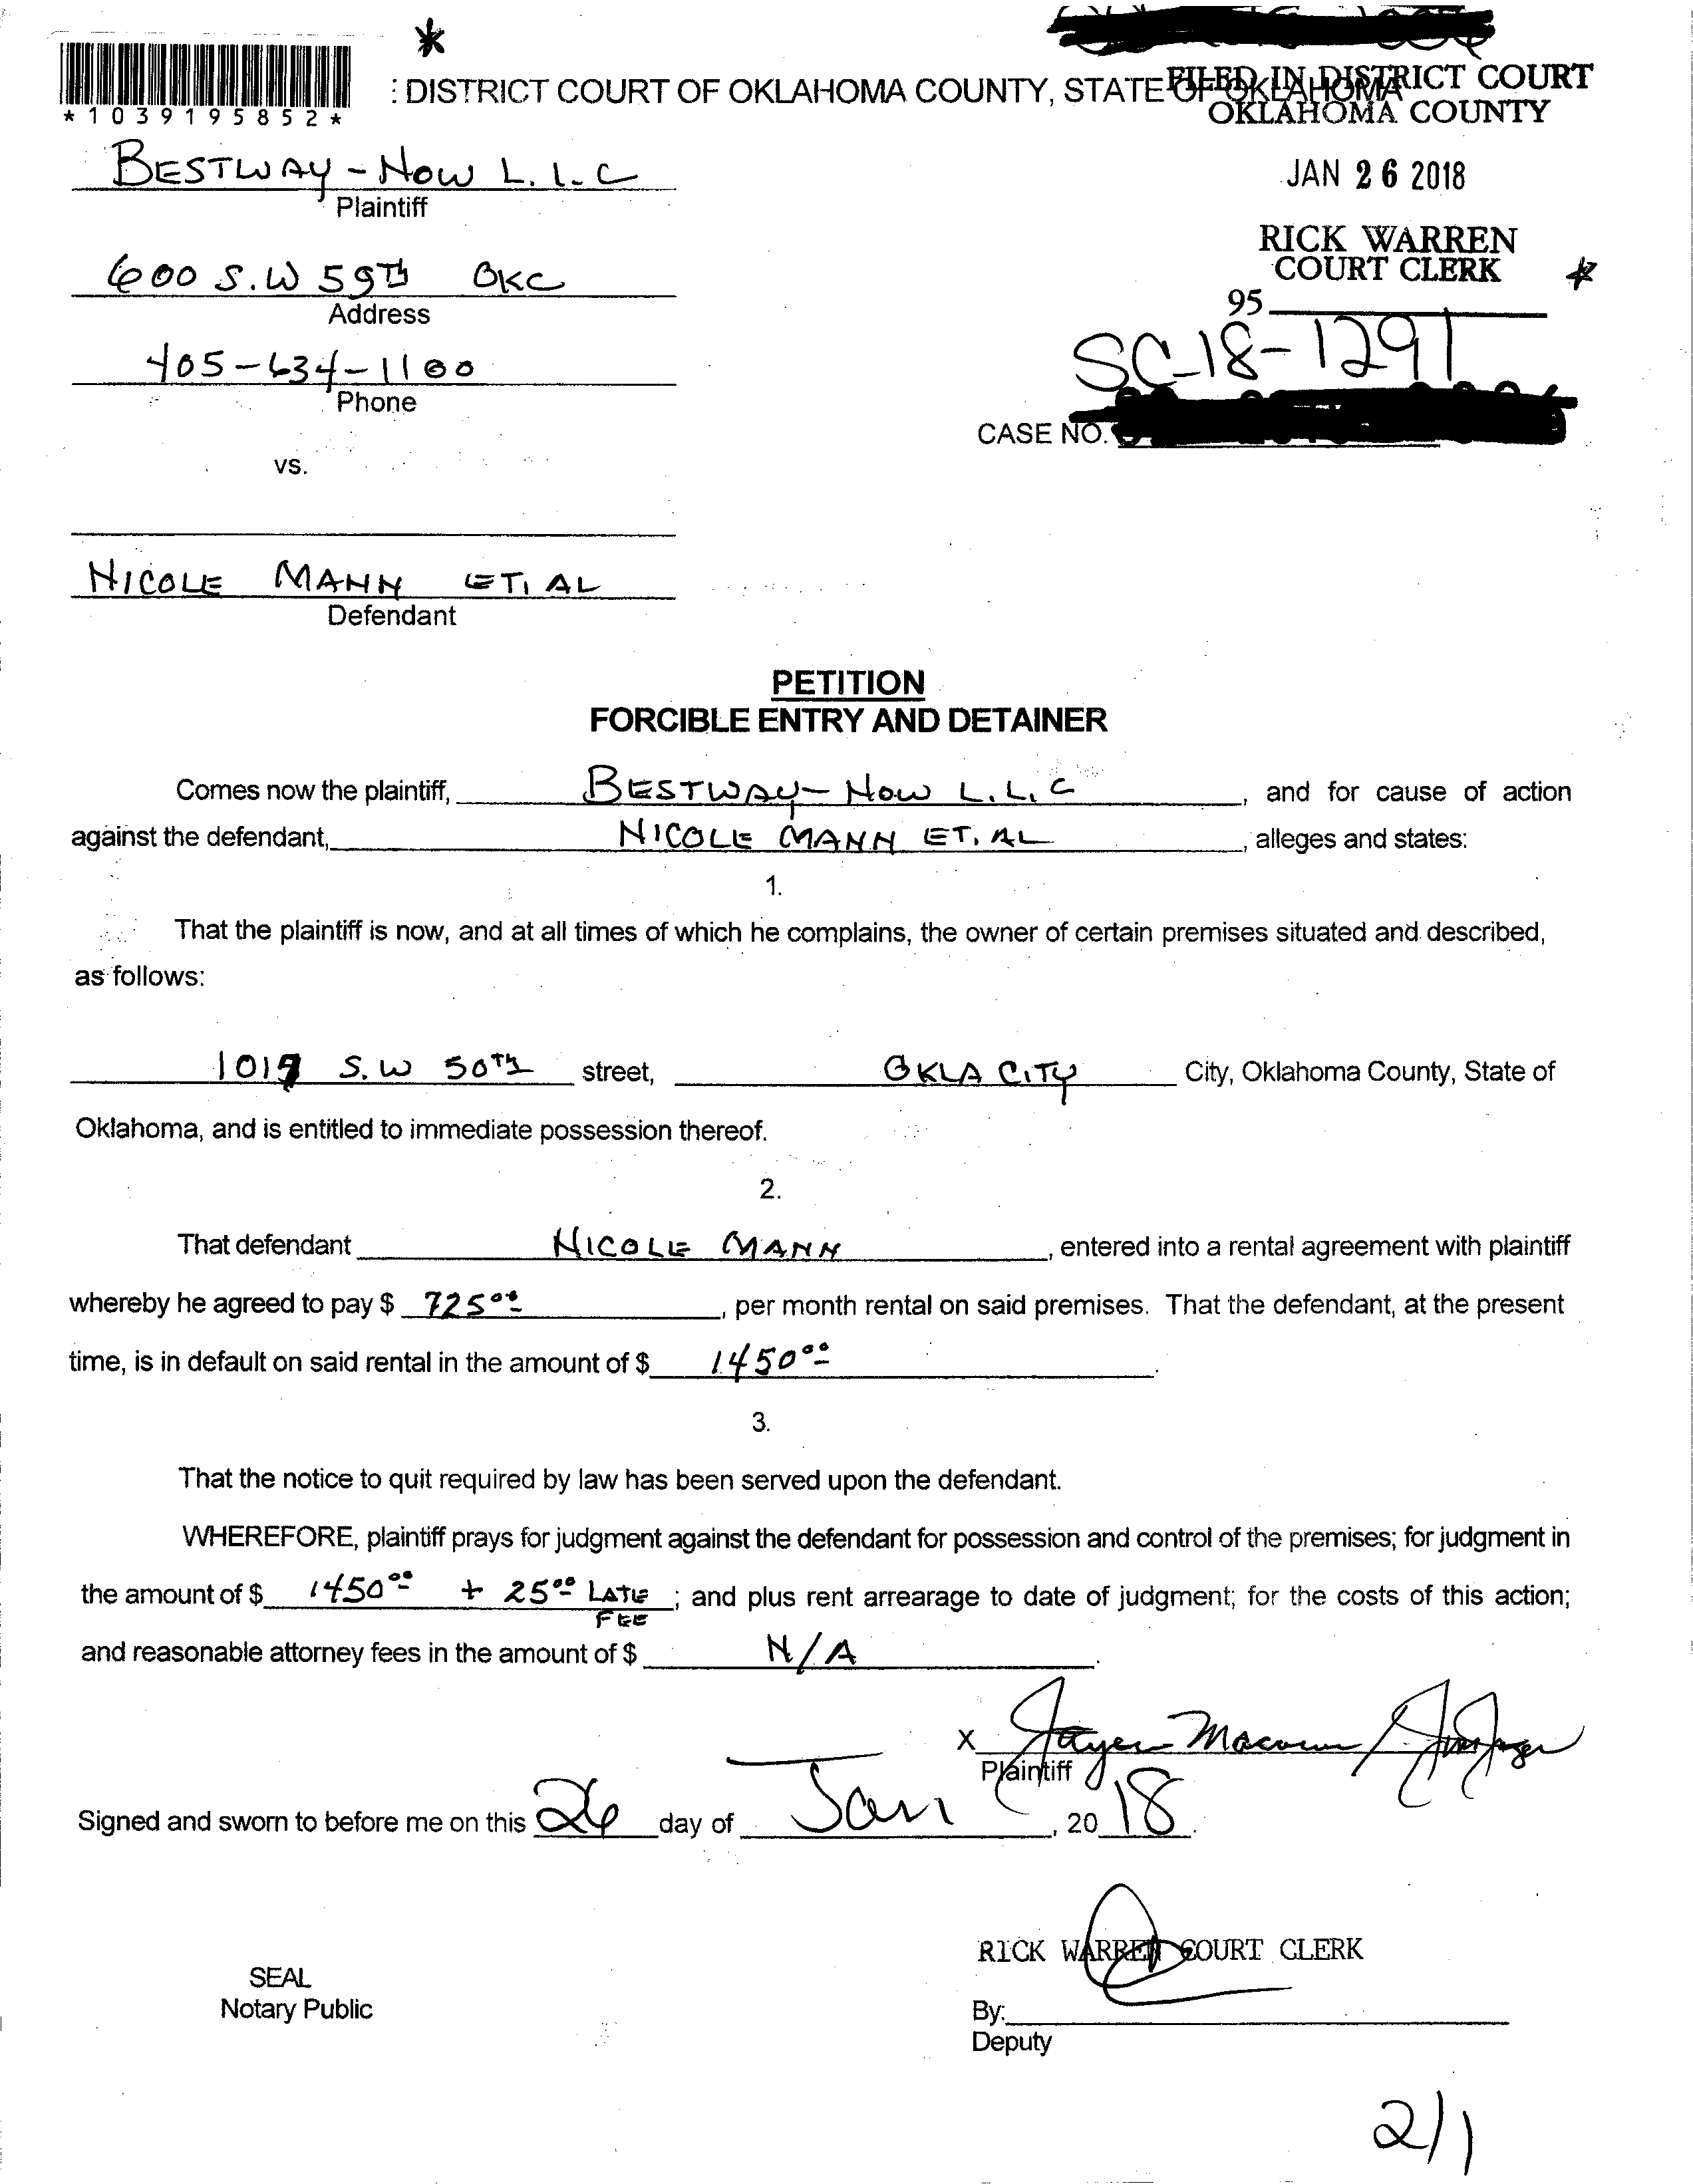 *
*1039195852*
: DISTRICT COURT OF OKLAHOMA COUNTY, STATE OF OKLAHOMA
FILED IN DISTRICT COURT
OKLAHOMA COUNTY
BESTWAY - NOW L.L.C
Plaintiff
JAN 26 2018
RICK WARREN
COURT CLERK *
600 S.W 59TH OKC
Address
95
405-634-1100
Phone
SC-18-1291
CASE NO.
vs.
NICOLE MANN ET. AL
Defendant
PETITION
FORCIBLE ENTRY AND DETAINER
Comes now the plaintiff, BESTWAY - NOW L.L.C , and for cause of action
against the defendant, NICOLE MANN ET. AL , alleges and states:
1.
That the plaintiff is now, and at all times of which he complains, the owner of certain premises situated and described,
as follows:
S.W 50TH street, OKLA CITY City, Oklahoma County, State of
Oklahoma, and is entitled to immediate possession thereof.
2.
That defendant NICOLE MANN , entered into a rental agreement with plaintiff
whereby he agreed to pay $ 725 00 , per month rental on said premises. That the defendant, at the present
time, is in default on said rental in the amount of $ 1450 00 .
3.
That the notice to quit required by law has been served upon the defendant.
WHEREFORE, plaintiff prays for judgment against the defendant for possession and control of the premises; for judgment in
the amount of $ 1450 00 + 25 00 LATE FEE ; and plus rent arrearage to date of judgment; for the costs of this action;
and reasonable attorney fees in the amount of $ N/A .
X
Plaintiff
Signed and sworn to before me on this 26 day of Jan , 20 18 .
RICK WARREN COURT CLERK
SEAL
Notary Public
By:
Deputy
2/1